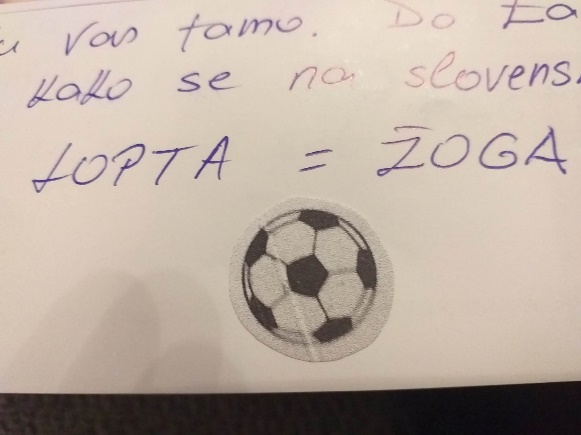 vas tamo. Do
kako se na slovens
LOPTA = ŽOGA